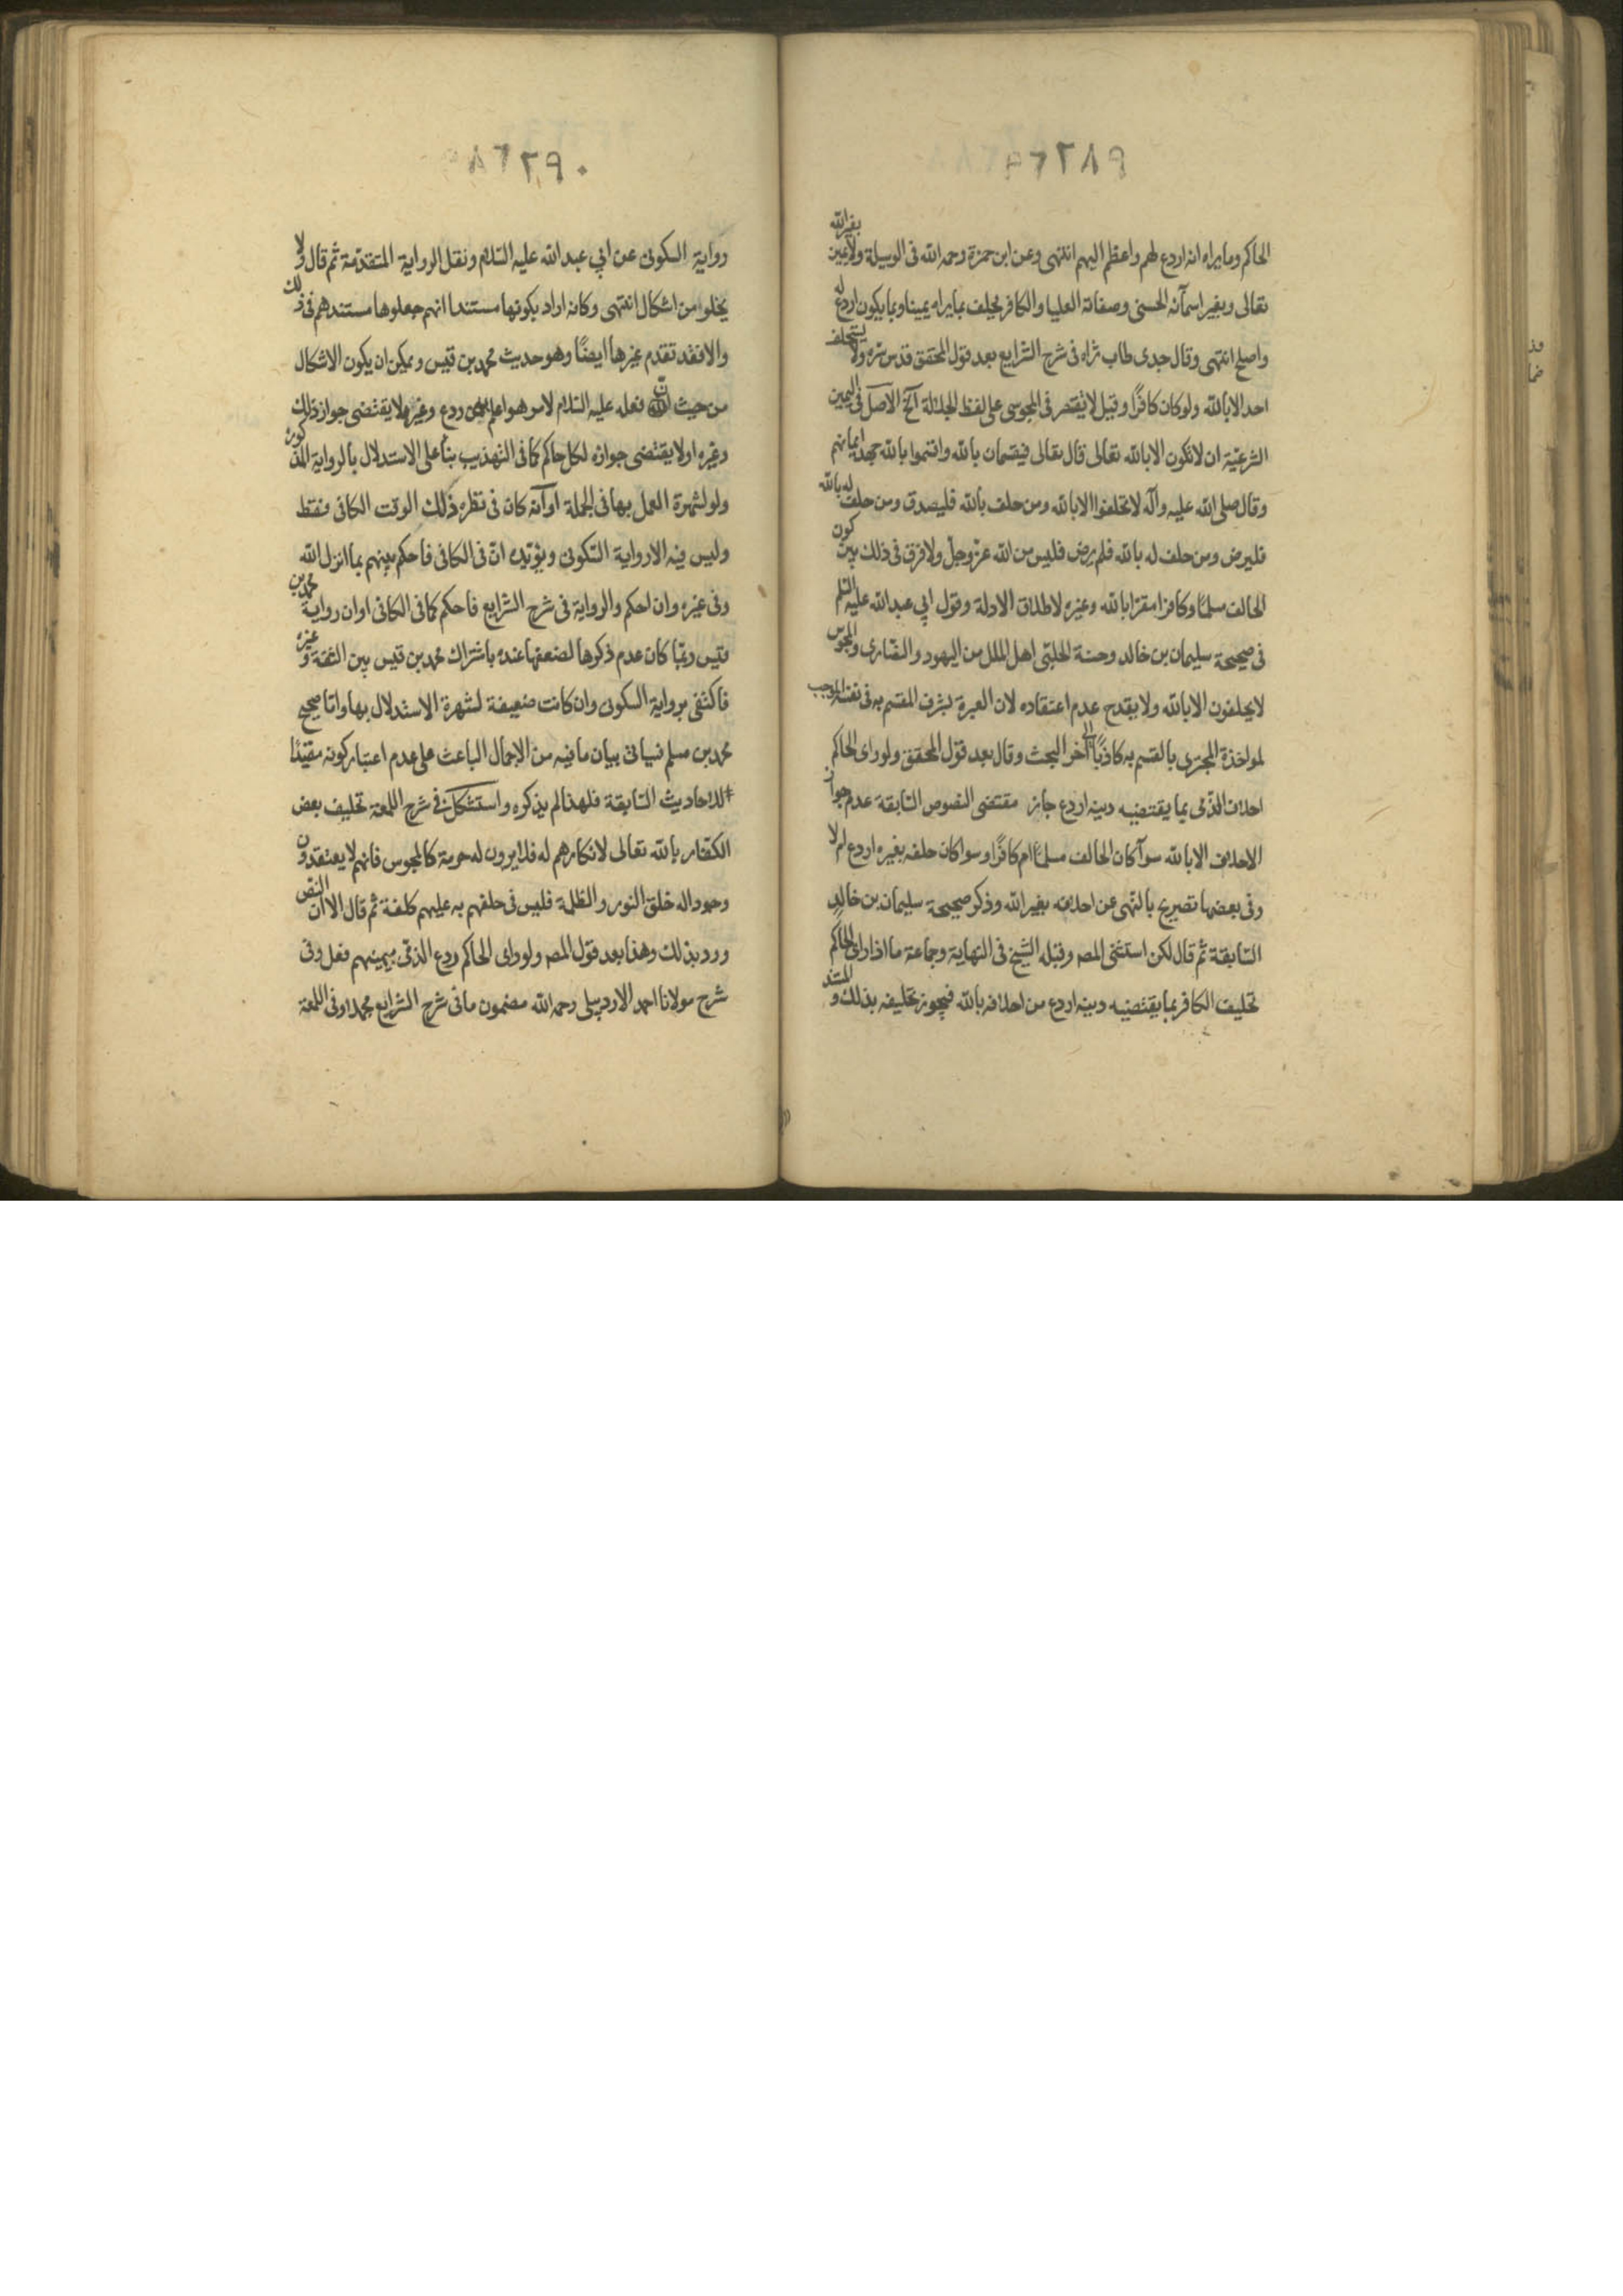 ٢٨٩
الحاكم وما يراه انه اردع لهم واعظم اليهم انتهى وعن ابن حمزة رحمه الله فى الوسيلة ولا يمين بغير الله
تعالى وبغير اسمآئه الحسنى وصفاته العليا والكافر يحلف بما يراه يمينا وبما يكون اردع له
واصلح انتهى وقال جدى طاب ثراه فى شرح الشرايع بعد قول المحقق قدس سره ولا يستحلف
احد الا بالله ولو كان كافرًا وقيل لا يقتصر فى المجوسى على لفظ الجلالة آلخ الاصل فى اليمين
الشرعيّة ان لا تكون الا بالله تعالى قال تعالى فيقسمان بالله واقسموا بالله جهد ايمانهم
وقال صلى الله عليه وآله لا تحلفوا الا بالله ومن حلف بالله فليصدق ومن حلف له بالله
فليرض ومن حلف له بالله فلم يرض فليس من الله عزّ وجلّ ولا فرق فى ذلك بين كون
الحالف مسلمًا وكافرا مقرّا بالله وغيره لاطلاق الادلة وقول ابي عبد الله عليه السّلم
فى صحيحة سليمان بن خالد وحسنة الحلبّى اهل الملل من اليهود والنّصارى والمجوس
لا يحلفون الا بالله ولا يقدح عدم اعتقاده لان العبرة بشرف المقسم به فى نفسه الموجب
لمواخذة المجترى بالقسم به كاذبًا الى آخر البحث وقال بعد قول المحقق ولو راى الحاكم
احلاف الذّمى بما يقتضيه دينه اردع جاز مقتضى النصوص السّابقة عدم جواز
الاحلاف الا بالله سوآ كان الحالف مسلمًا ام كافرًا وسوا كان حلفه بغيره اردع له ام لا
وفى بعضها تصريح بالنّهى عن احلافه بغير الله وذكر صحيحة سليمان بن خالد
السّابقة ثمّ قال لكن استثنى المصه وقبله الشيخ فى النهاية وجماعة ما اذا راى الحاكم
تحليف الكافر بما يقتضيه دينه اردع من احلافه بالله فيجوز تحليفه بذلك والمستند
٢٩٠
رواية السكونى عن ابي عبد الله عليه السّلام ونقل الرواية المتقدّمة ثم قال ولا
يخلو من اشكال انتهى وكانه اراد بكونها مستندا انهم جعلوها مستندهم فى ذلك
والا فقد تقدم غيرها ايضًا وهو حديث محمد بن قيس ويمكن ان يكون الاشكال
من حيث انّ فعله عليه السّلام لامر هو اعلم به من ردع وغيره لا يقتضى جواز ذلك
وغيره او لا يقتضى جوازه لكل حاكم كما فى التهذيب بنأ على الاستدلال بالرواية المذكورة
ولو لشهرة العمل بها فى الجملة او آنه كان فى نظره ذلك الوقت الكافى فقط
وليس فيه الا رواية السّكونى ويؤيّده انّ فى الكافى فاحكم بينهم بما انزل الله
وفى غيره وان احكم والرواية فى شرح الشرايع فاحكم كما فى الكافى او ان رواية محمد بن
قيس ربّما كان عدم ذكرها لضعفها عنده باشتراك محمد بن قيس بين الثقة وغيره
فاكتفى برواية السكونى وان كانت ضعيفة لشهرة الاستدلال بها وامّا صحيح
محمد بن مسلم فسياتى بيان ما فيه من الاجمال الباعث على عدم اعتبار كونه مقيّدًا
للاحاديث السّابقة فلهذا لم يذكره واستشكل فى شرح اللمعة تحليف بعض
الكفّار بالله تعالى لانكارهم له فلا يرون له حرمة كالمجوس فانهم لا يعتقدون
وجود اله خلق النور والظلمة فليس فى حلفهم به عليهم كلفة ثم قال الا ان النص
ورد بذلك وهذا بعد قول المصه ولو راى الحاكم ردع الذمّى بيمينهم فعل وفى
شرح مولانا احمد الاردبيلى رحمه الله مضمون ما فى شرح الشرايع مجملا وفى اللمعة